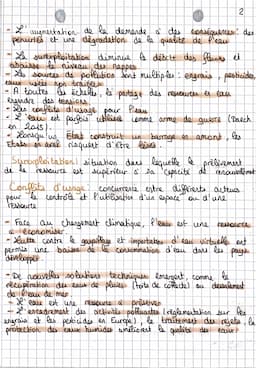 2
- L'augmentation de la demande a des conséquences : des
pénuries et une dégradation de la qualité de l'eau
- La surexploitation diminue le débit des fleuves et
abaisse le niveau des nappes
- Les sources de pollution sont multiples : engrais, pesticides,
eaux usées non traitées
- A toutes les échelles, le partage des ressources en eau
engendre des tensions
- Des conflits d'usage pour l'eau
- L'eau est parfois utilisée comme arme de guerre (Daech
en 2015)
- Lorsqu'un Etat construit un barrage en amont, les
Etats en aval risquent d'être lésés.
Surexploitation : situation dans laquelle le prélèvement
de la ressource est supérieur à sa capacité de renouvellement
Conflits d'usage : concurrence entre différents acteurs
pour le contrôle et l'utilisation d'un espace ou d'une
ressource
- Face au changement climatique, l'eau est une ressource
à économiser
- Lutte contre le gaspillage et importation d'eau virtuelle ont
permis une baisse de la consommation d'eau dans les pays
développés
- De nouvelles solutions techniques émergent, comme la
récupération des eaux de pluies (toits de collecte) ou dessalement
de l'eau de mer
- L'eau est une ressource à préserver
- L'encadrement des activités polluantes (réglementation sur les
engrais et les pesticides en Europe), le traitement des rejets, la
protection des eaux humides améliorent la qualité des eaux